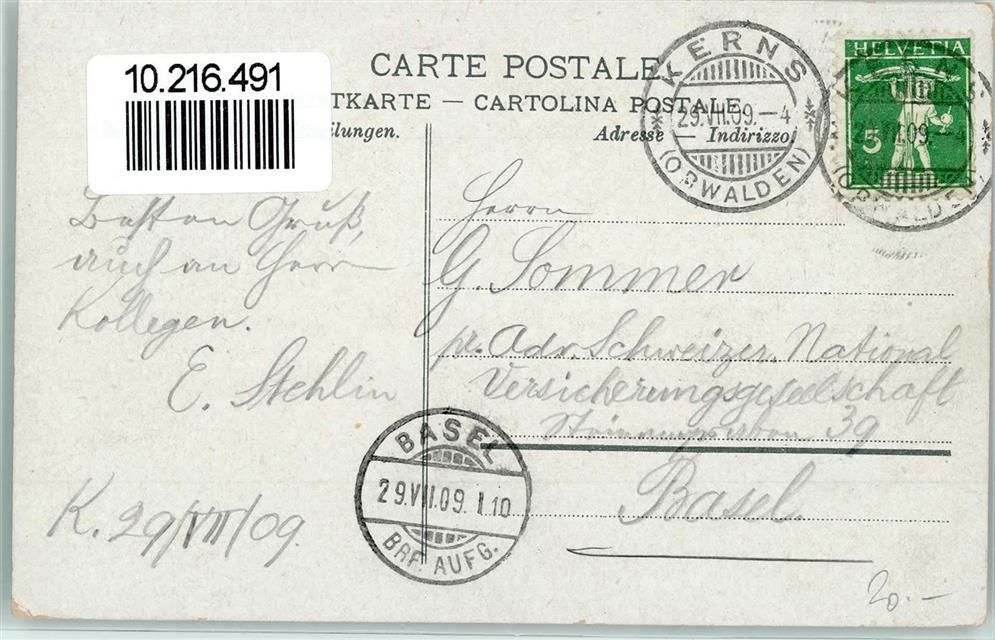 10.216.491
CARTE POSTALE
TKARTE — CARTOLINA POSTALE
ilungen.
Adresse — Indirizzo.
KERNS
29.VII.09.–4
(OBWALDEN)
HELVETIA
5
KERNS
29.VII.09.–4
(OBWALDEN)
Besten Gruß,
auch an Herrn
Kollegen.
E. Stehlin
K. 29/VII/09.
Herrn
G. Sommer
pr. Adr. Schweizer. National
Versicherungsgesellschaft
39
Basel.
BASEL
29.VII.09. II.10
BRF. AUFG.
20.—